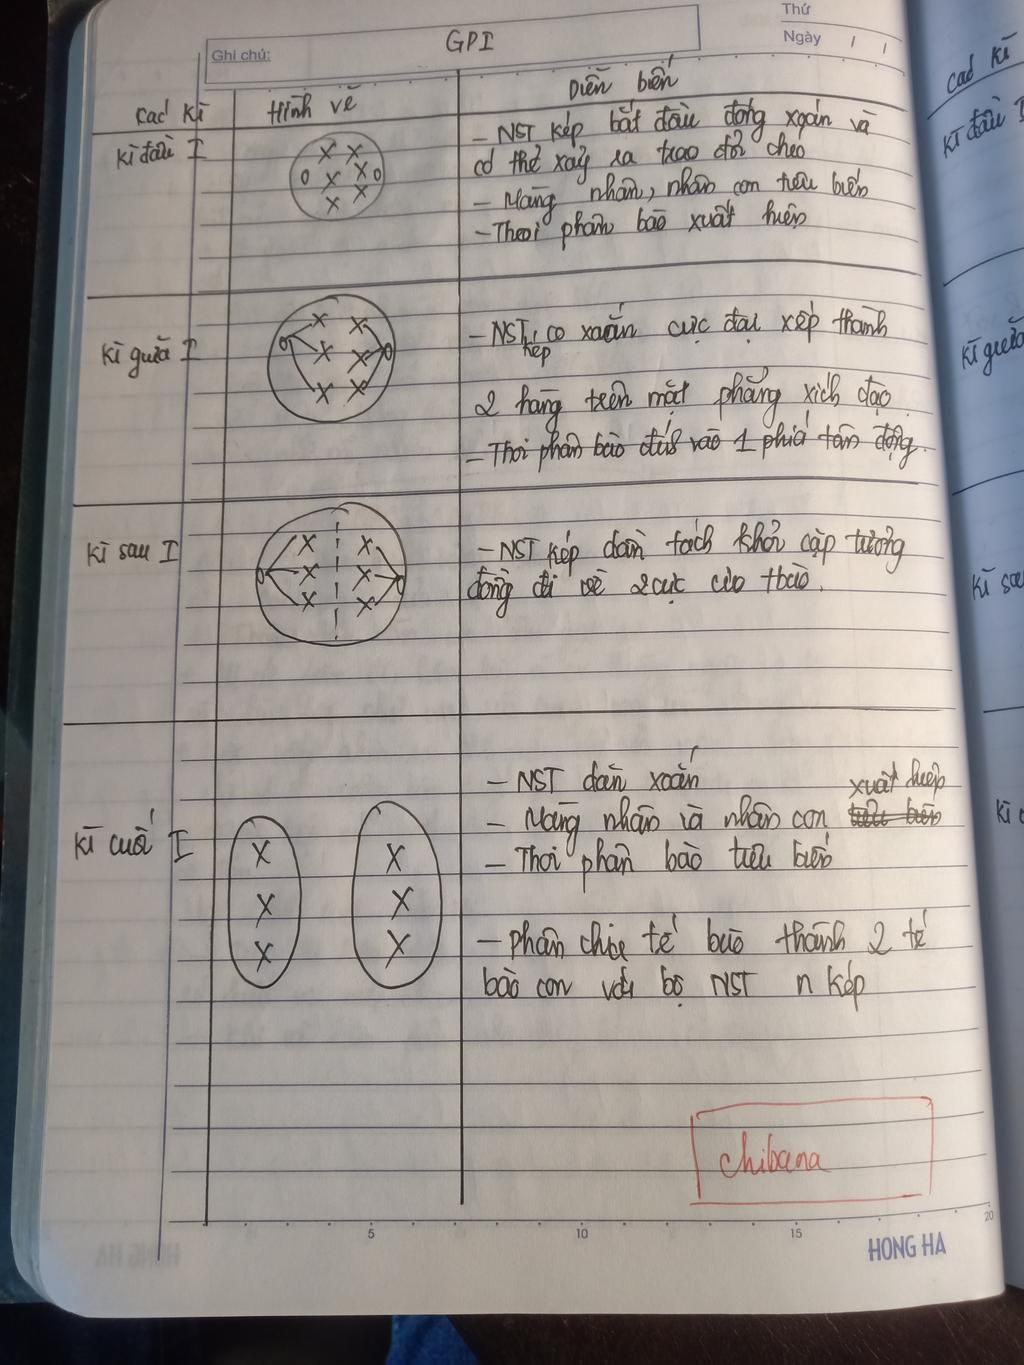 Thứ
Ghi chú: GPI
Ngày / /
Các kì Hình vẽ Diễn biến
Kì đầu I
- NST kép bắt đầu đóng xoắn và
có thể xảy ra trao đổi chéo
- Màng nhân, nhân con tiêu biến
- Thoi phân bào xuất hiện
Kì giữa I
- NST kép co xoắn cực đại xếp thành
2 hàng trên mặt phẳng xích đạo
- Thoi phân bào đính vào 1 phía tâm động.
Kì sau I
- NST kép dần tách khỏi cặp tương
đồng đi về 2 cực của tbào.
Kì cuối I
- NST dãn xoắn
xuất hiện
- Màng nhân và nhân con tiêu biến
- Thoi phân bào tiêu biến
- phân chia tế bào thành 2 tế
bào con với bộ NST n kép
chibana
5 10 15 20
HONG HA
Các kì
Kì đầu
Kì giữa
Kì sau